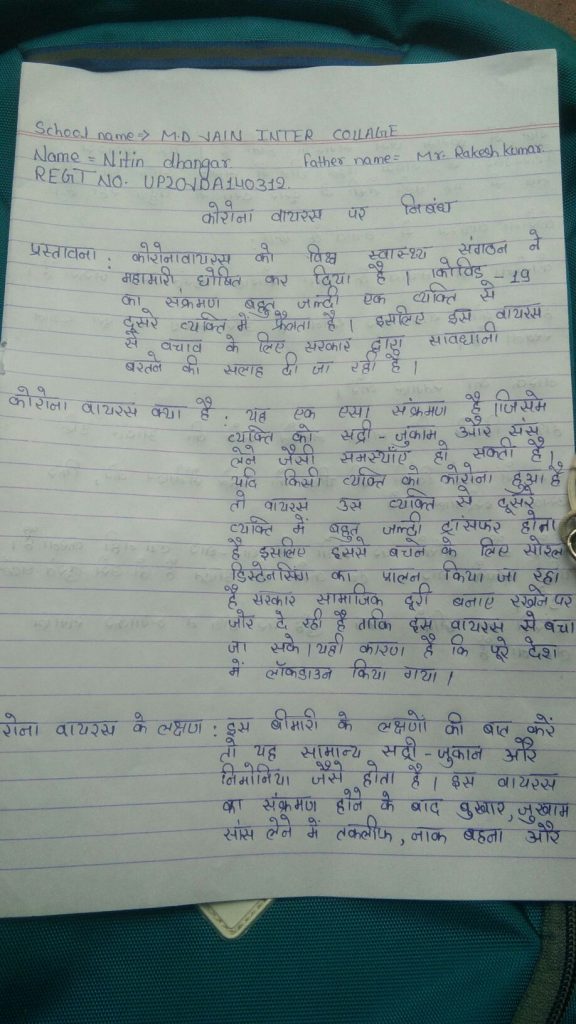 School name => M.D JAIN INTER COLLAGE
Name = Nitin dhangar father name = Mr. Rakesh kumar.
REGT NO. UP20JDA140319.
कोरोना वायरस पर निबंध
प्रस्तावना : कोरोनावायरस को विश्व स्वास्थ्य संगठन ने
महामारी घोषित कर दिया है। कोविड - 19
का संक्रमण बहुत जल्दी एक व्यक्ति से
दूसरे व्यक्ति में फैलता है। इसलिए इस वायरस
से बचाव के लिए सरकार द्वारा सावधानी
बरतने की सलाह दी जा रही है।
कोरोना वायरस क्या है : यह एक एसा संक्रमण है जिसमे
व्यक्ति को सर्दी - जुंकाम और सांस
लेने जैसी समस्याँए हो सक्ती है।
यदि किसी व्यक्ति को कोरोना हुआ है
तो वायरस उस व्यक्ति से दूसरे
व्यक्ति में बहुत जल्दी ट्रांसफर होता
है इसलिए इससे बचने के लिए सोशल
डिस्टेनसिंग का पालन किया जा रहा
है सरकार सामाजिक दूरी बनाए रखने पर
जोर दे रही है ताकि इस वायरस से बचा
जा सके। यही कारण है कि पूरे देश
में लॉकडाउन किया गया।
रोना वायरस के लक्षण : इस बीमारी के लक्षणों की बात करें
तो यह सामान्य सर्दी - जुकान और
निमोनिया जैसे होता है। इस वायरस
का संक्रमण होने के बाद बुखार, जुखाम
सांस लेने में तकलीफ, नाक बहना और